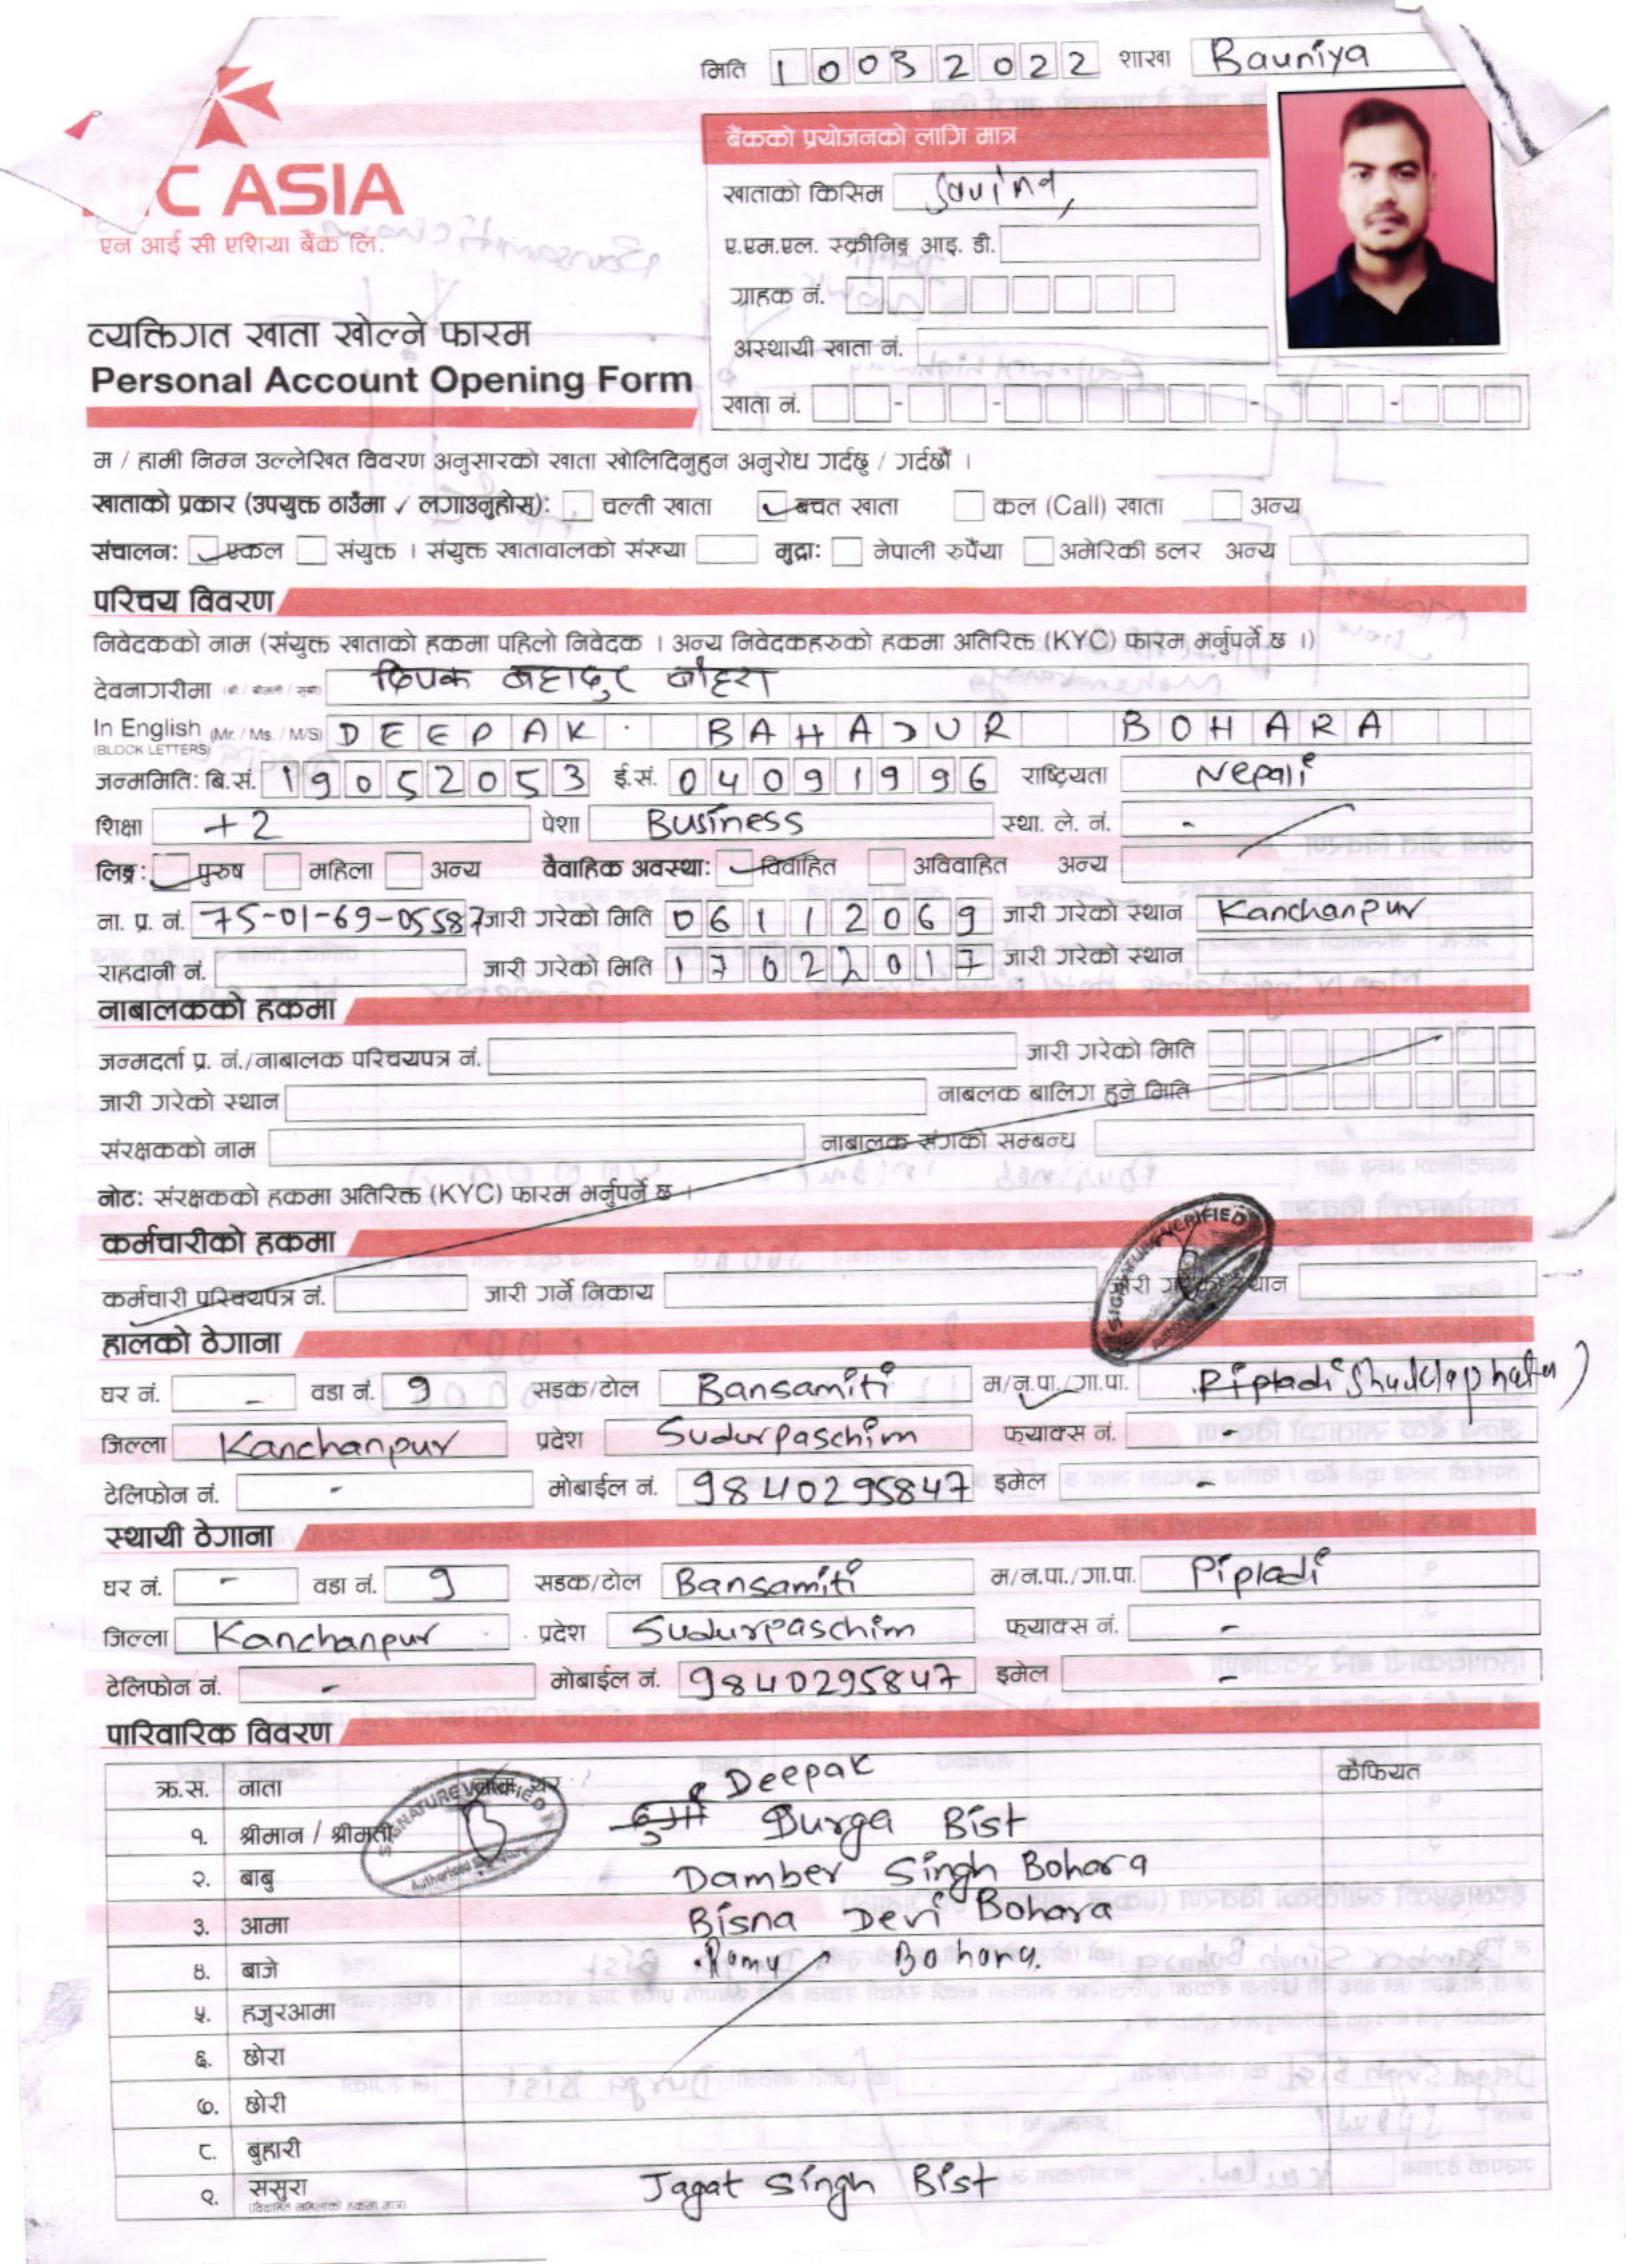 मिति 10032022 शाखा Bauniya
C ASIA
एन आई सी एशिया बैंक लि.
बैंकको प्रयोजनको लागि मात्र
खाताको किसिम Saving
ए.एम.एल. स्क्रीनिङ्ग आइ. डी.
ग्राहक नं.
अस्थायी खाता नं.
खाता नं. - - - -
व्यक्तिगत खाता खोल्ने फारम
Personal Account Opening Form
म / हामी निम्न उल्लेखित विवरण अनुसारको खाता खोलिदिनुहुन अनुरोध गर्दछु / गर्दछौं ।
खाताको प्रकार (उपयुक्त ठाउँमा ✓ लगाउनुहोस्): चल्ती खाता ✓ बचत खाता कल (Call) खाता अन्य
संचालन: ✓ एकल संयुक्त । संयुक्त खातावालको संख्या मुद्रा: नेपाली रुपैंया अमेरिकी डलर अन्य
परिचय विवरण
निवेदकको नाम (संयुक्त खाताको हकमा पहिलो निवेदक । अन्य निवेदकहरुको हकमा अतिरिक्त (KYC) फारम भर्नुपर्ने छ ।)
देवनागरीमा (श्री / श्रीमती / सुश्री) दिपक बहादुर बोहरा
In English (Mr. / Ms. / M/S) DEEPAK BAHADUR BOHARA
(BLOCK LETTERS)
जन्ममिति: बि.सं. 19052053 ई.सं. 04091996 राष्ट्रियता Nepali
शिक्षा +2 पेशा Business स्था. ले. नं. -
लिङ्ग: ✓ पुरुष महिला अन्य वैवाहिक अवस्था: ✓ विवाहित अविवाहित अन्य
ना. प्र. नं. 75-01-69-05587 जारी गरेको मिति 06112069 जारी गरेको स्थान Kanchanpur
राहदानी नं. जारी गरेको मिति 17022017 जारी गरेको स्थान
नाबालकको हकमा
जन्मदर्ता प्र. नं./नाबालक परिचयपत्र नं. जारी गरेको मिति
जारी गरेको स्थान नाबलक बालिग हुने मिति
संरक्षकको नाम नाबालक संगको सम्बन्ध
नोट: संरक्षकको हकमा अतिरिक्त (KYC) फारम भर्नुपर्ने छ ।
कर्मचारीको हकमा
SIGNATURE VERIFIED
कर्मचारी परिचयपत्र नं. जारी गर्ने निकाय जारी गरेको स्थान
हालको ठेगाना
घर नं. - वडा नं. 9 सडक/टोल Bansamiti म/न.पा./गा.पा. Pipladi
जिल्ला Kanchanpur प्रदेश Sudurpaschim फ्याक्स नं. -
टेलिफोन नं. - मोबाईल नं. 9840295847 इमेल -
स्थायी ठेगाना
घर नं. - वडा नं. 9 सडक/टोल Bansamiti म/न.पा./गा.पा. Pipladi
जिल्ला Kanchanpur प्रदेश Sudurpaschim फ्याक्स नं. -
टेलिफोन नं. - मोबाईल नं. 9840295847 इमेल -
पारिवारिक विवरण
क्र.स. नाता नाम थर Deepak कैफियत
SIGNATURE VERIFIED
Authorised Signature
१. श्रीमान / श्रीमती Durga Bist
२. बाबु Damber Singh Bohara
३. आमा Bisna Devi Bohara
४. बाजे Bohara.
५. हजुरआमा
६. छोरा
७. छोरी
८. बुहारी
९. ससुरा Jagat Singh Bist
(विवाहित महिलाको हकमा मात्र)